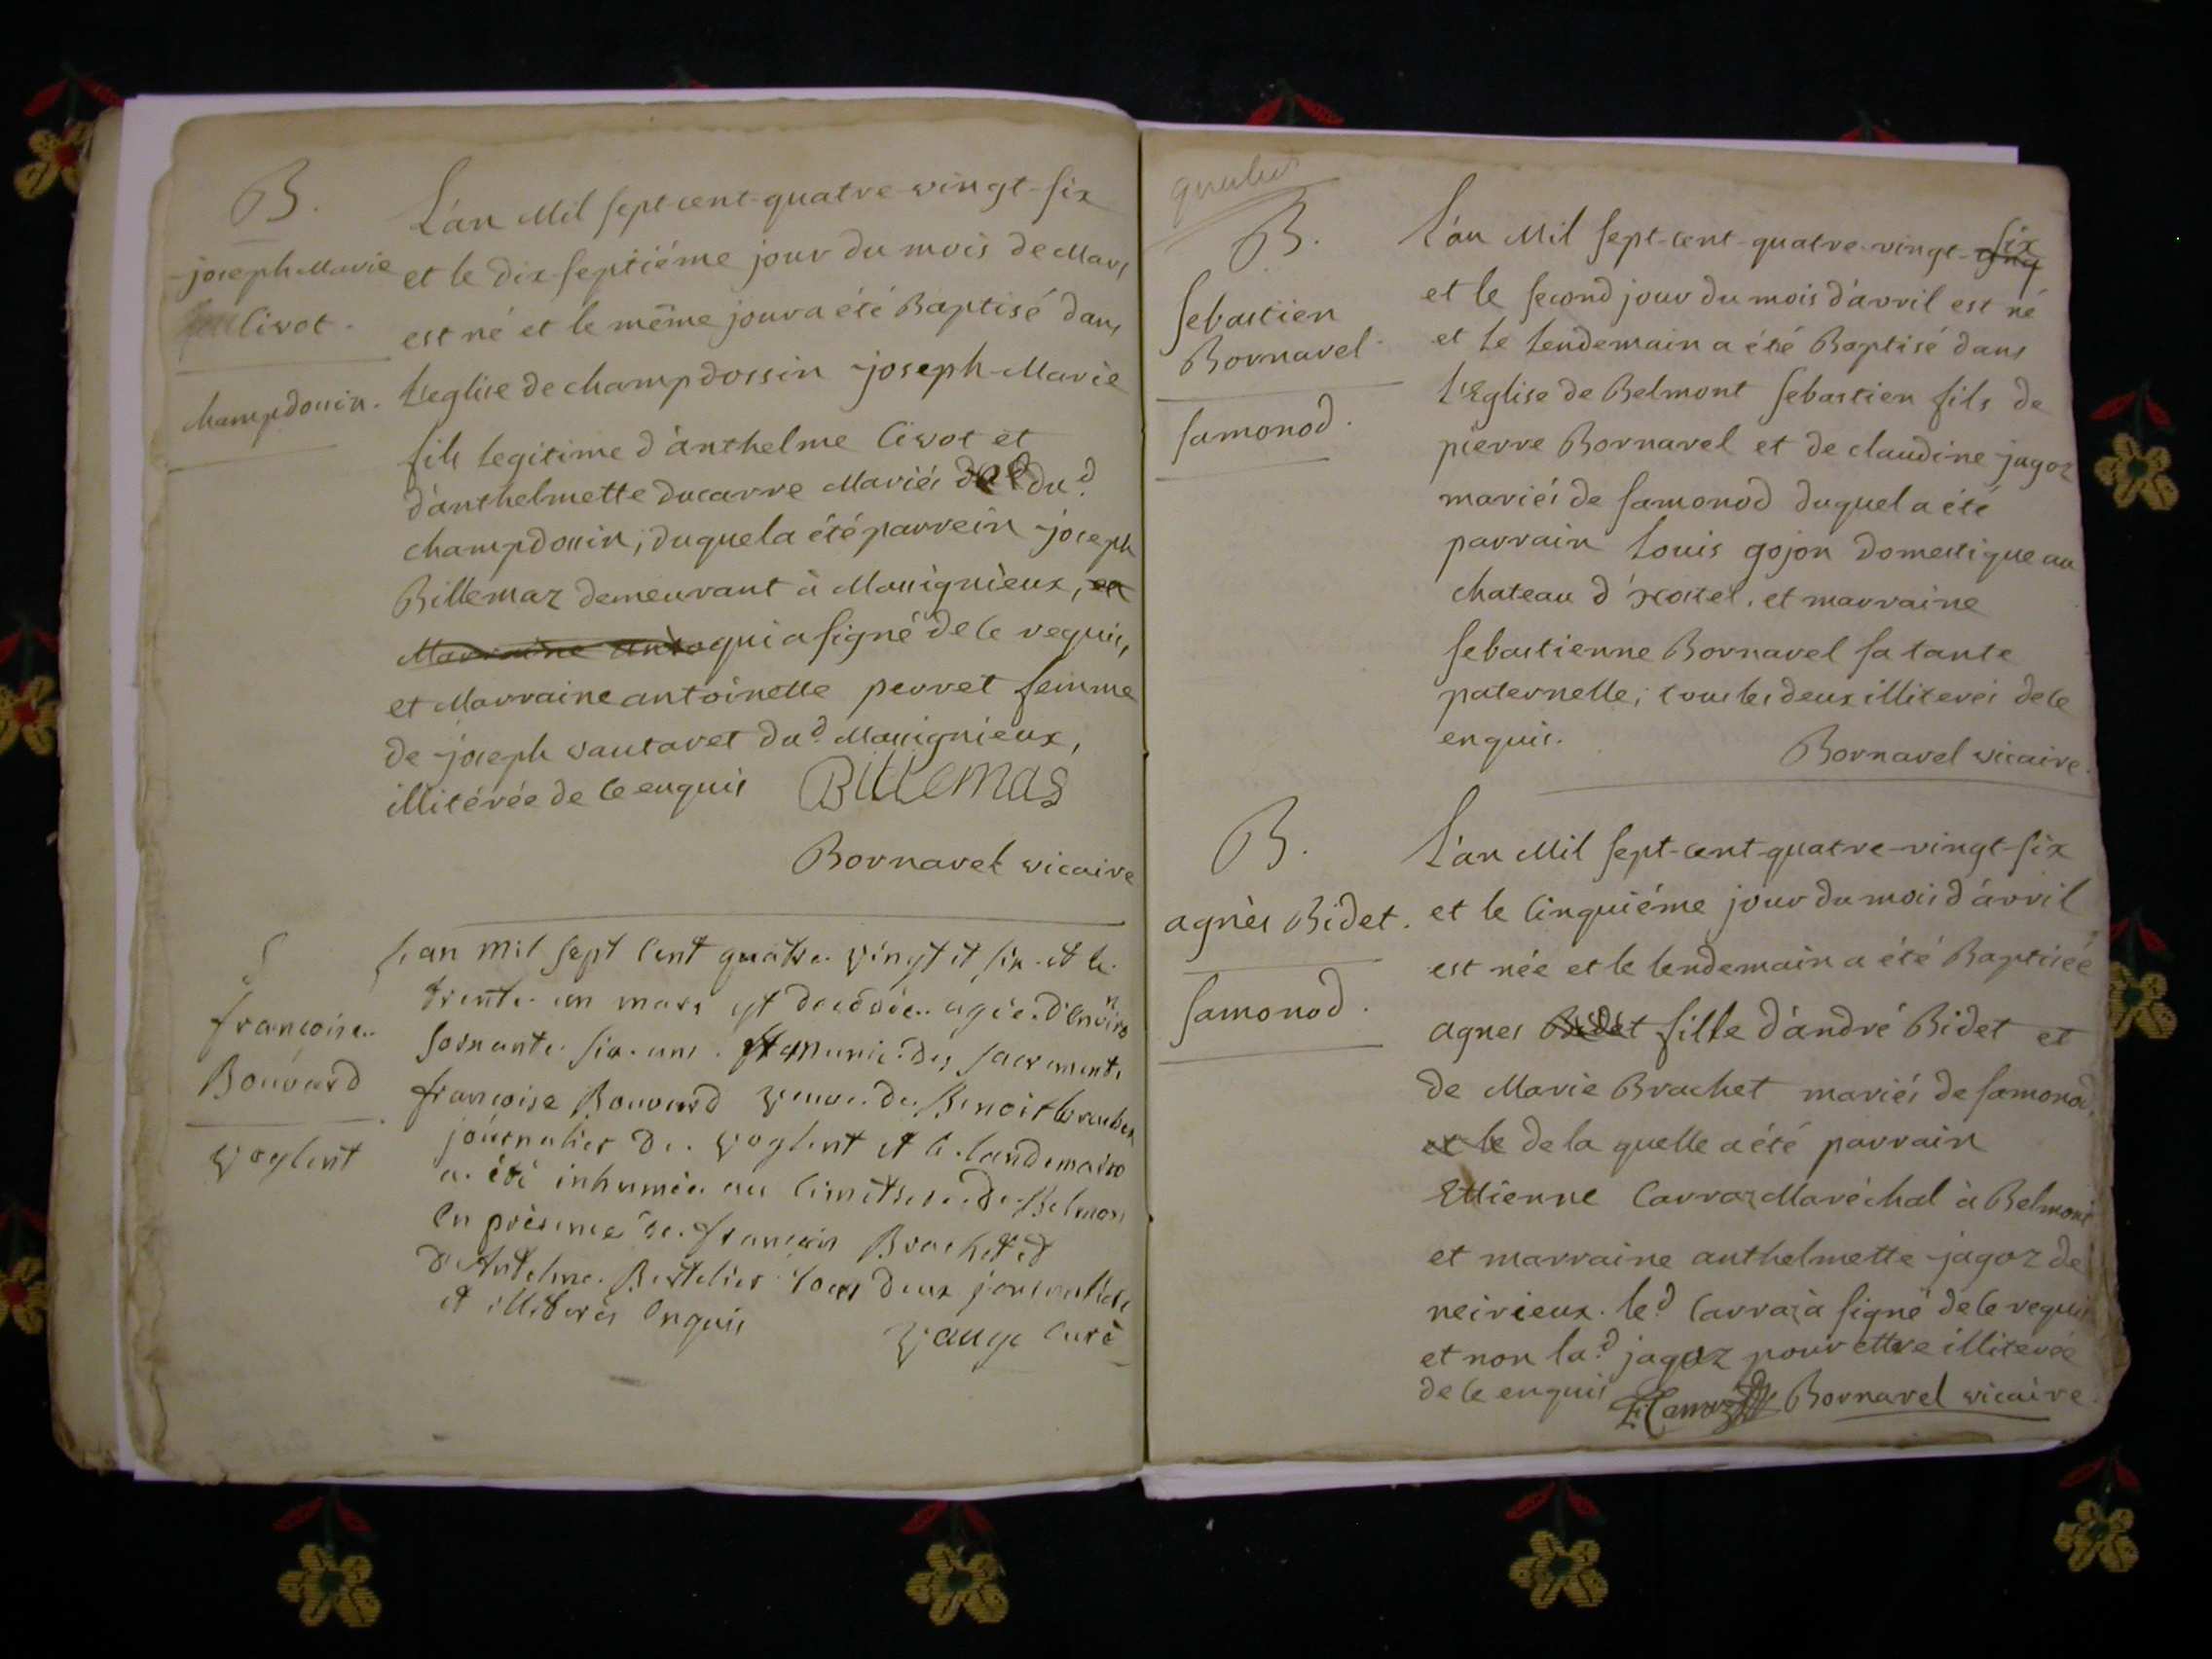 B.
joseph Marie
Civot.
champdossin.
L'an Mil sept cent-quatre-vingt-six
et le dix septiéme jour du mois de Mars
est né et le même jour a été Baptisé dans
L'eglise de champdossin joseph-Marie
fils legitime d'anthelme Civot et
d'anthelmette ducarre Mariés dud.
champdossin, duquel a été parrein joseph
Billemaz demeurant à Massignieux, et
Marraine anto qui a signé de ce requis,
et Marraine antoinette perret femme
de joseph vautaret dud. Massignieux,
illitérée de ce enquis Billemas
Bornarel vicaire
S
francoise
Bouvard
Voglent
L'an mil sept cent quatre vingt et six et le
trente un mars est decedée agée d'environ
soixante six ans munie des sacrements
francoise Bouvard veuve de Benoit
journalier de Voglent et le landemain
a été inhumée au cimetiere de Belmon
en présence de francois Brachet et
d'Antelme Bertelier tous deux journaliers
et illiterés enquis
Vauge curé
B.
Sebastien
Bornarel.
Samonod.
L'an Mil sept-cent-quatre-vingt-six
et le second jour du mois d'avril est né
et le lendemain a été Baptisé dans
l'Eglise de Belmont Sebastien fils de
pierre Bornarel et de claudine jagoz
mariés de Samonod duquel a été
parrain Louis gojon domestique au
chateau d'xostel. et marraine
Sebastienne Bornarel sa tante
paternelle; tous les deux illiterés de ce
enquis.
Bornarel vicaire.
B.
agnès Bidet.
Samonod.
L'an Mil sept-cent-quatre-vingt-six
et le Cinquiéme jour du mois d'avril
est née et le lendemain a été Baptisée
agnes Bidet fille d'andré Bidet et
de Marie Brachet mariés de Samonod.
et le de la quelle a été parrain
Etienne Carraz Maréchal à Belmont
et marraine anthelmette jagoz de
neirieux. led. Carraz à signé de ce requis
et non lad. jagoz pour ettre illiterée
de ce enquis E Carraz Bornarel vicaire.